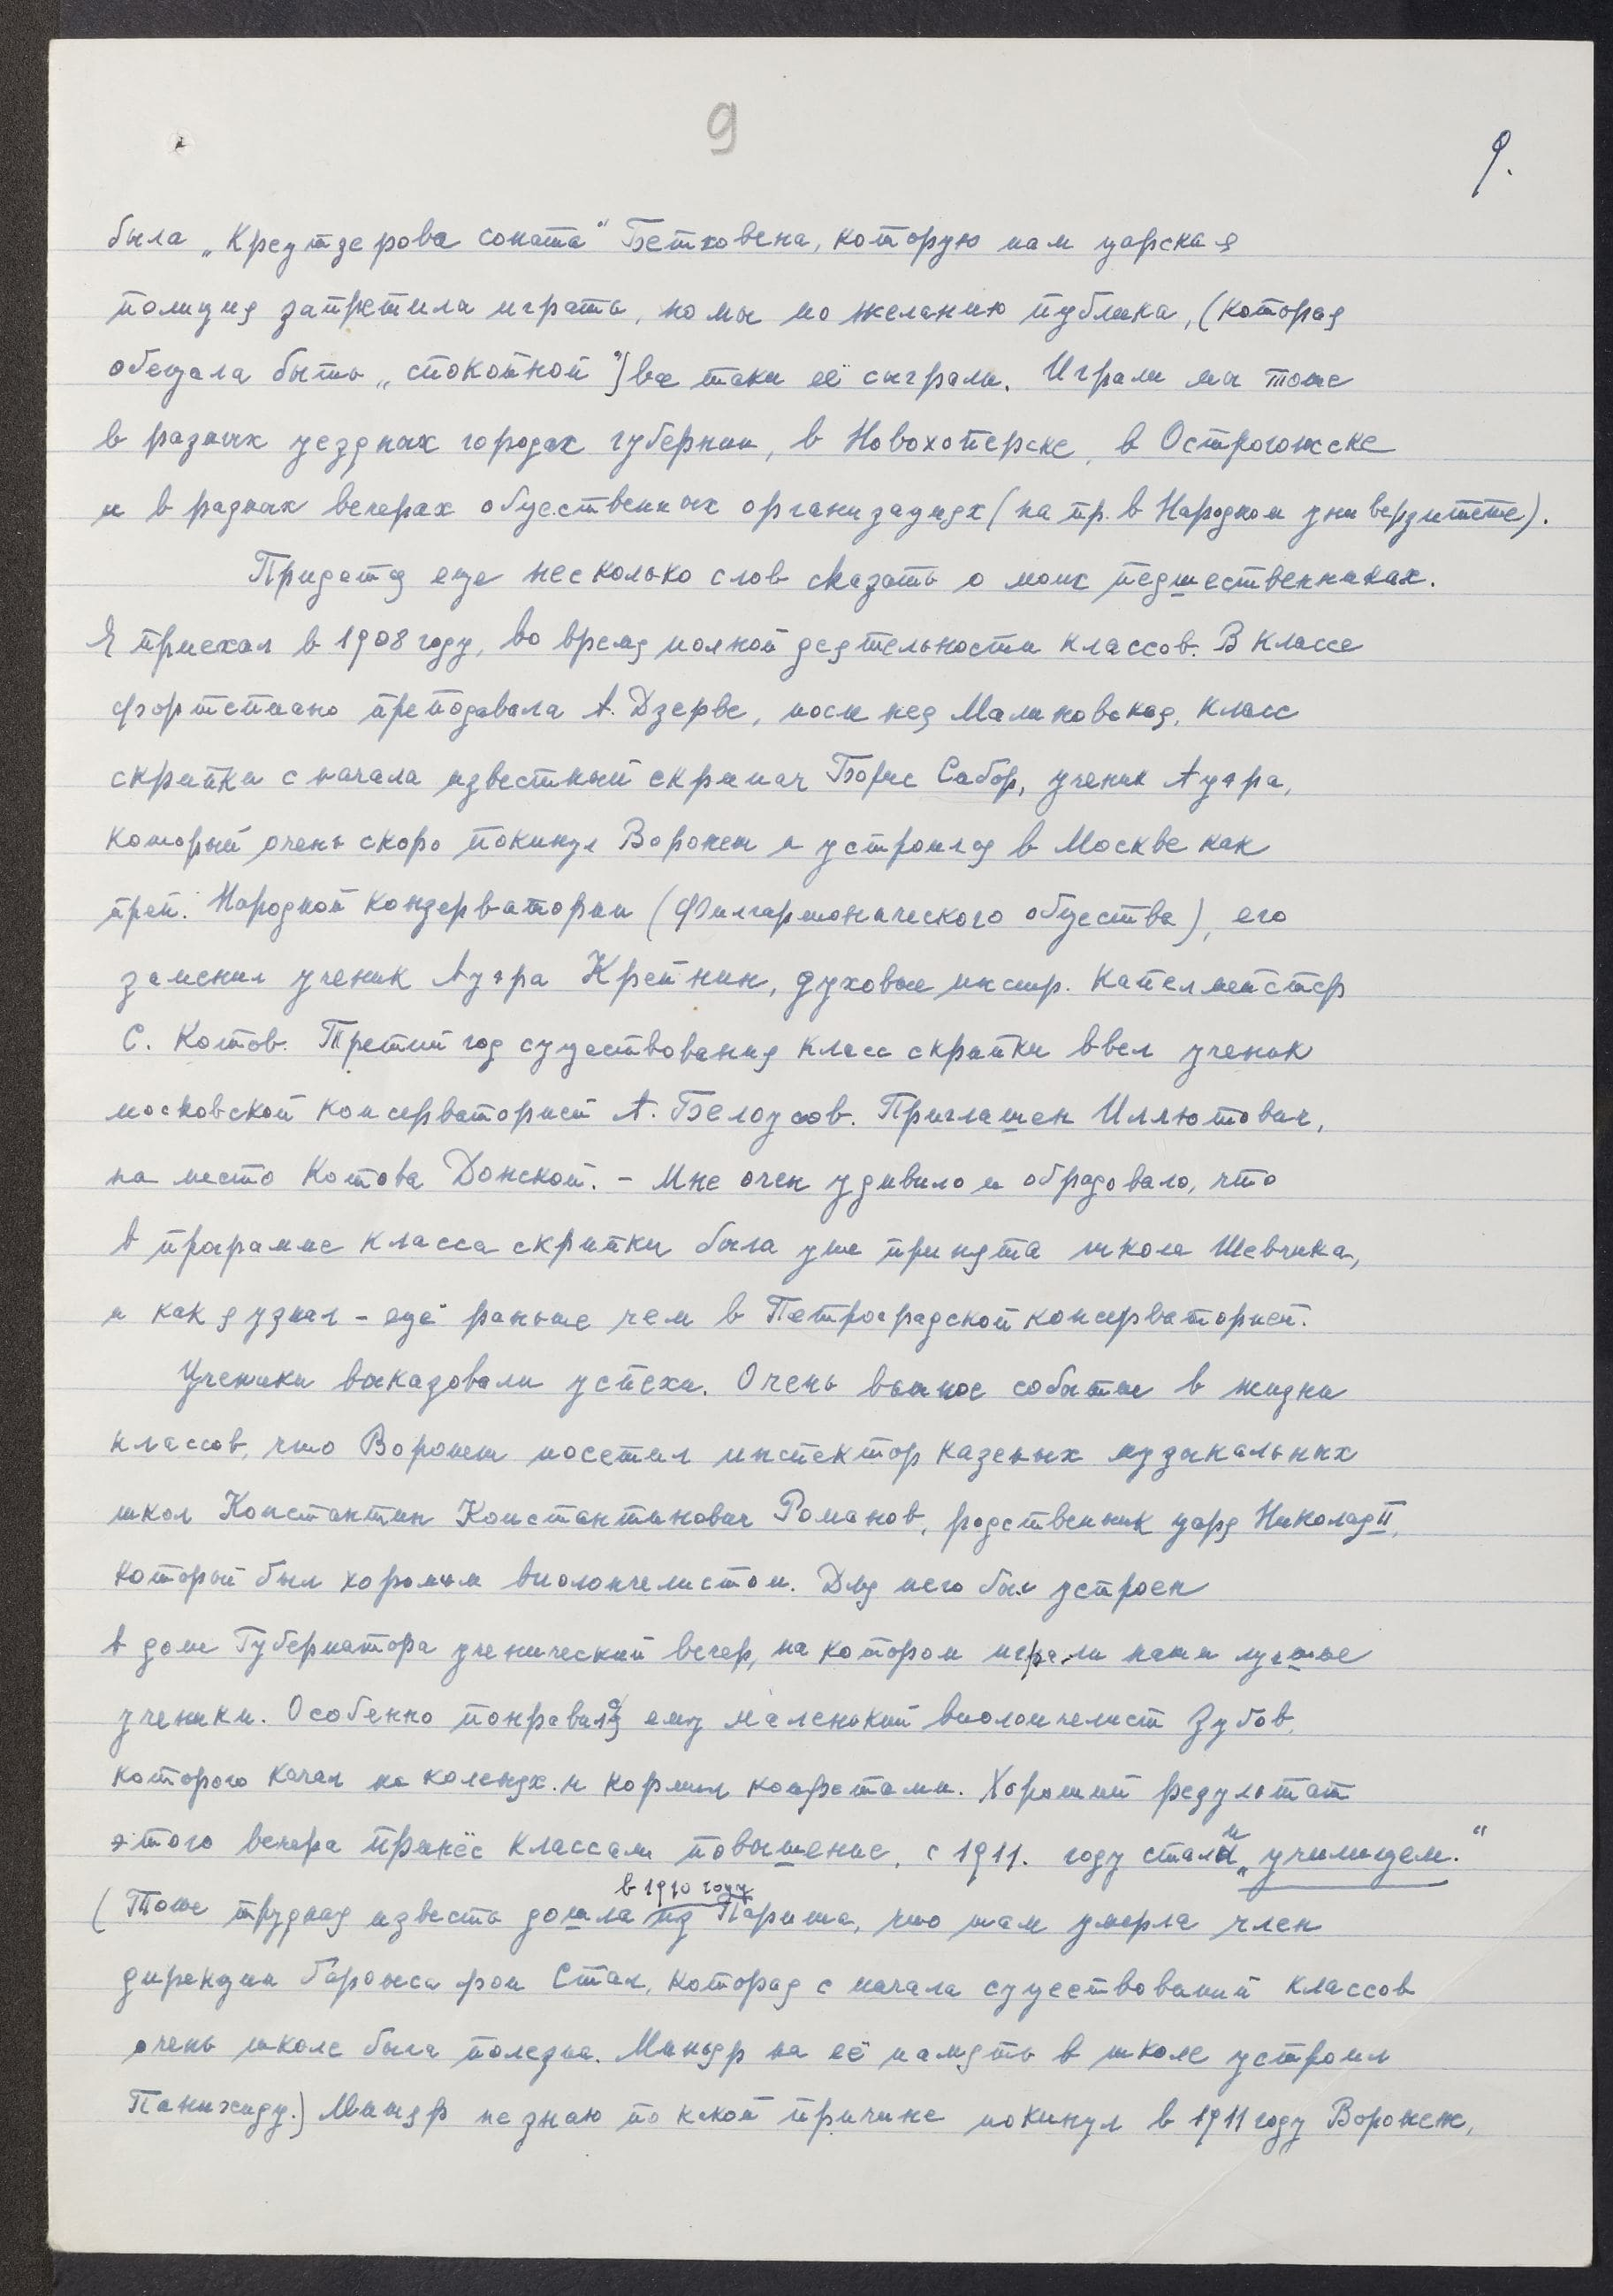 9
9.
была „Креутзерова соната" Бетховена, которую нам царская
полиция запретила играть, но мы по желанию публика, (которая
обещала быть „спокойной") все таки её сыграли. Играли мы тоже
в разных уездных городах губернии, в Новохоперске, в Острогожске
и в разных вечерах общественных организациях (на пр. в Народном универзитете).
Придется еще несколько слов сказать о моих педшественниках.
Я приехал в 1908 году, во время полной деятельности классов. В классе
фортепиано преподавала А. Дзерве, после нея Малиновская, класс
скрипки с начала известный скрипач Борис Сабор, ученик Ауэра,
который очень скоро покинул Воронеж и устроился в Москве как
преп. Народной Конзерватории (Филгармонического общества), его
заменил ученик Ауэра Крейнин, духовые инстр. Капелмейстер
С. Котов. Третий год существования класс скрипки ввел ученик
московской консерваторист А. Белоусов. Приглашен Иллютович,
на место Котова Донской. - Мне очен удивило и обрадовало, что
в программе класса скрипки была уже принята школа Шевчика,
и как я узнал - ещё раньше чем в Петроградской консерваторией.
Ученики выказовали успехи. Очень важное событие в жизни
классов, что Воронеж посетил инспектор казеных музыкальных
школ Константин Константинович Романов, родственник царя Николая II,
который был хорошим виолончелистом. Для него был устроен
в доме Губернатора ученический вечер, на котором играли наши лучшие
ученики. Особенно понравился ему маленький виолончелист Зубов,
которого качал на коленях и кормил конфетами. Хороший результат
этого вечера принёс классам повышение, с 1911. году стали „училищем."
в 1910 году
(Тоже трудная известь дошла из Парижа, что там умерла член
дирекции баронеса фон Стал, которая с начала существований классов
очень школе была полезна. Миньяр на её память в школе устроил
Панихиду.) Миньяр не знаю по какой причине покинул в 1911 году Воронеж,